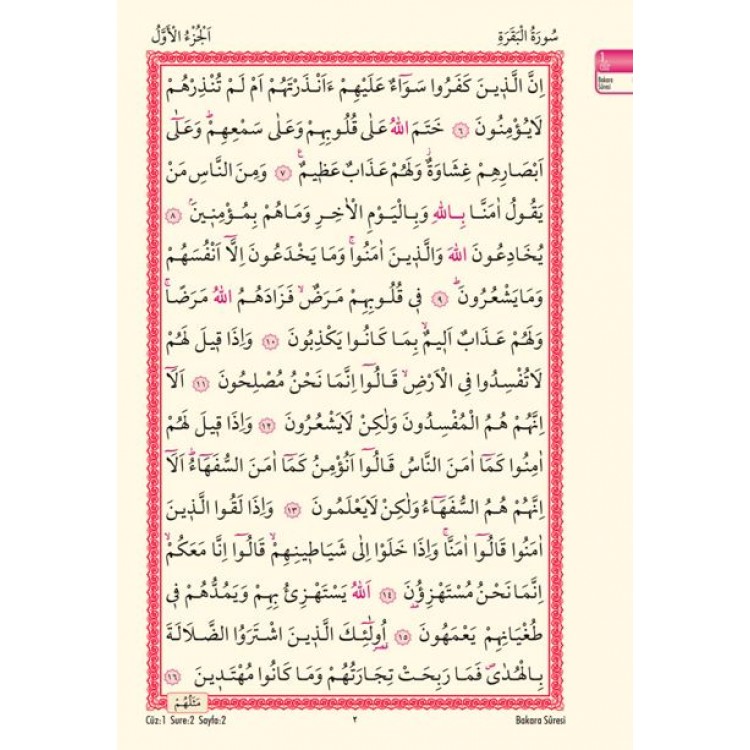 سُورَةُ الْبَقَرَةِ
اَلْجُزْءُ الْأَوَّلُ
1
CÜZ
Bakara
Sûresi
اِنَّ الَّذ۪ينَ كَفَرُوا سَوَٓاءٌ عَلَيْهِمْ ءَاَنْذَرْتَهُمْ اَمْ لَمْ تُنْذِرْهُمْ
لَا يُؤْمِنُونَ ﴿٦﴾ خَتَمَ اللّٰهُ عَلٰى قُلُوبِهِمْ وَعَلٰى سَمْعِهِمْۜ وَعَلٰٓى
اَبْصَارِهِمْ غِشَاوَةٌۘ وَلَهُمْ عَذَابٌ عَظ۪يمٌ۟ ﴿٧﴾ وَمِنَ النَّاسِ مَنْ
يَقُولُ اٰمَنَّا بِاللّٰهِ وَبِالْيَوْمِ الْاٰخِرِ وَمَا هُمْ بِمُؤْمِن۪ينَۢ ﴿٨﴾
يُخَادِعُونَ اللّٰهَ وَالَّذ۪ينَ اٰمَنُواۚ وَمَا يَخْدَعُونَ اِلَّٓا اَنْفُسَهُمْ
وَمَا يَشْعُرُونَۜ ﴿٩﴾ ف۪ي قُلُوبِهِمْ مَرَضٌۙ فَزَادَهُمُ اللّٰهُ مَرَضًاۚ
وَلَهُمْ عَذَابٌ اَل۪يمٌۙ بِمَا كَانُوا يَكْذِبُونَ ﴿١٠﴾ وَاِذَا ق۪يلَ لَهُمْ
لَا تُفْسِدُوا فِي الْاَرْضِۙ قَالُٓوا اِنَّمَا نَحْنُ مُصْلِحُونَ ﴿١١﴾ اَلَٓا
اِنَّهُمْ هُمُ الْمُفْسِدُونَ وَلٰكِنْ لَا يَشْعُرُونَ ﴿١٢﴾ وَاِذَا ق۪يلَ لَهُمْ
اٰمِنُوا كَمَٓا اٰمَنَ النَّاسُ قَالُٓوا اَنُؤْمِنُ كَمَٓا اٰمَنَ السُّفَهَٓاءُۜ اَلَٓا
اِنَّهُمْ هُمُ السُّفَهَٓاءُ وَلٰكِنْ لَا يَعْلَمُونَ ﴿١٣﴾ وَاِذَا لَقُوا الَّذ۪ينَ
اٰمَنُوا قَالُٓوا اٰمَنَّاۚ وَاِذَا خَلَوْا اِلٰى شَيَاط۪ينِهِمْۙ قَالُٓوا اِنَّا مَعَكُمْۙ
اِنَّمَا نَحْنُ مُسْتَهْزِؤُ۫نَ ﴿١٤﴾ اَللّٰهُ يَسْتَهْزِئُ بِهِمْ وَيَمُدُّهُمْ ف۪ي
طُغْيَانِهِمْ يَعْمَهُونَ ﴿١٥﴾ اُو۬لٰٓئِكَ الَّذ۪ينَ اشْتَرَوُا الضَّلَالَةَ
بِالْهُدٰىۖ فَمَا رَبِحَتْ تِجَارَتُهُمْ وَمَا كَانُوا مُهْتَد۪ينَ ﴿١٦﴾
مَثَلُهُمْ
Cüz:1 Sure:2 Sayfa:2
٢
Bakara Sûresi